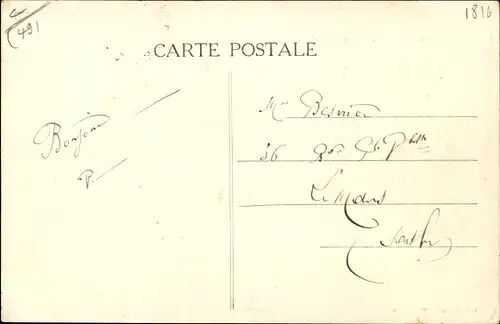 1816
491
CARTE POSTALE
Bonjour
P.
Mme Besnier
56
Le Mans
Sarthe